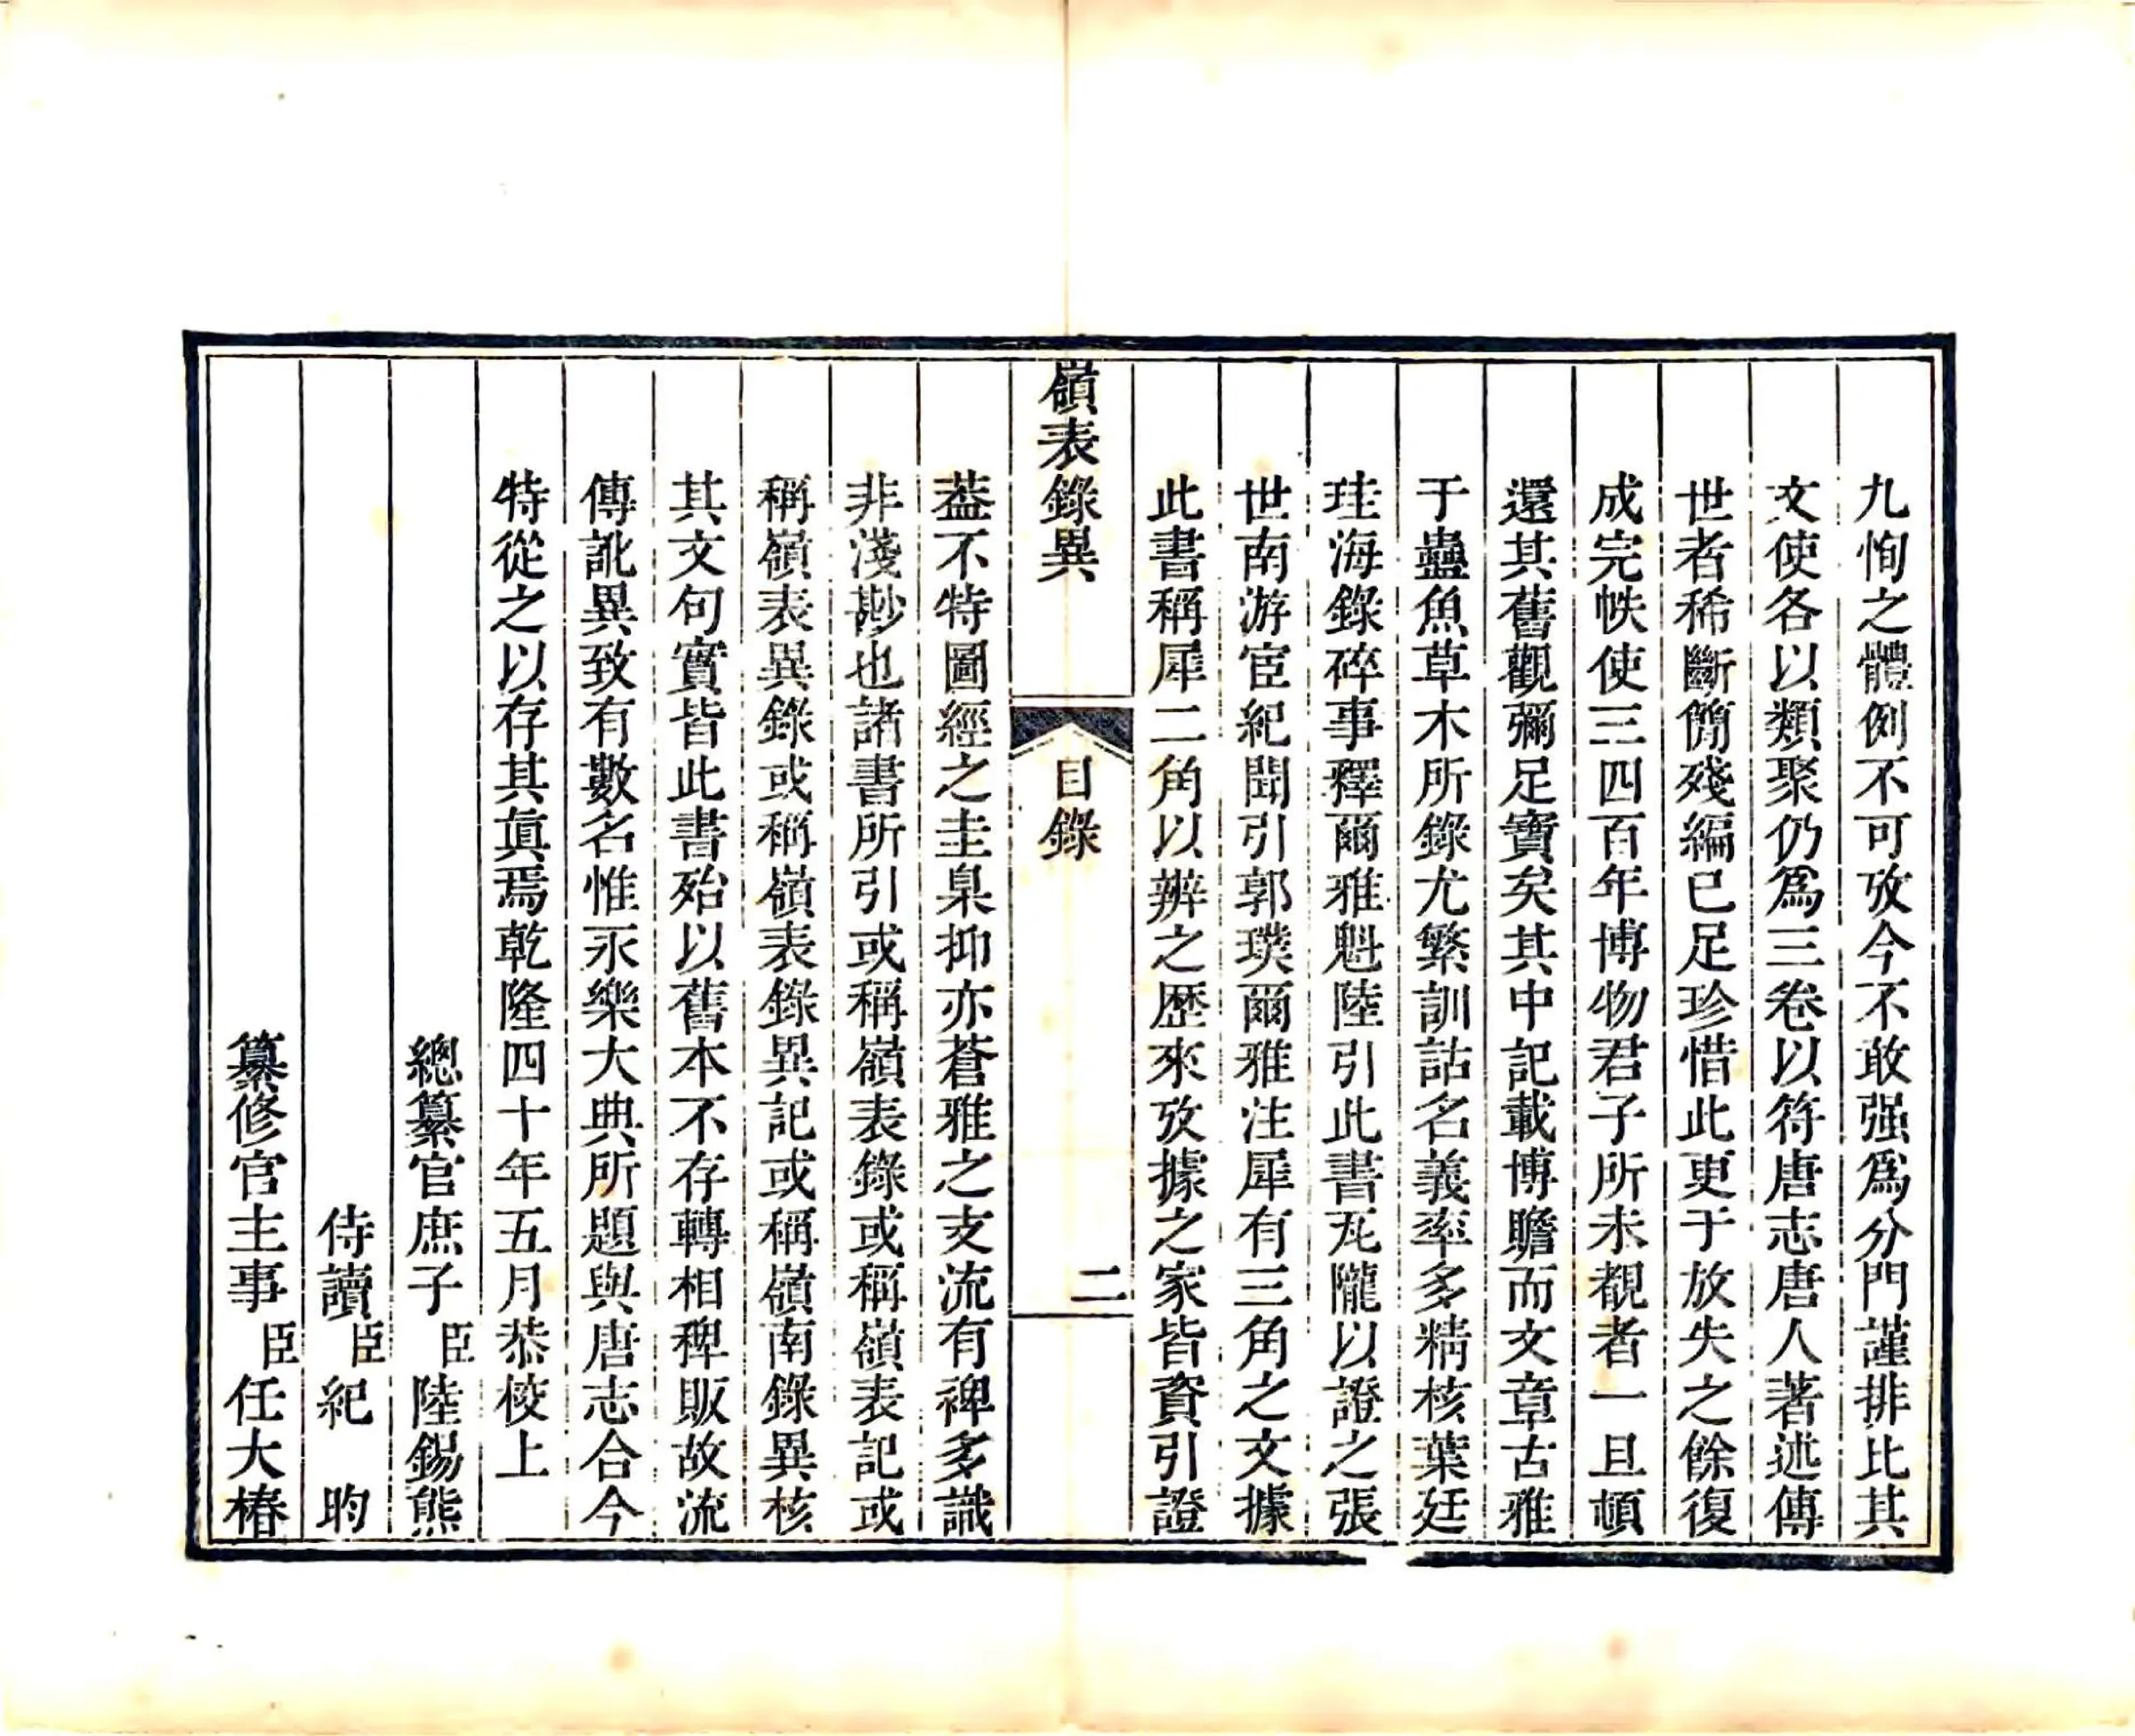 九恂之體例不可攷今不敢强爲分門謹排比其
文使各以類聚仍爲三卷以符唐志唐人著述傳
世者稀斷簡殘編已足珍惜此更于放失之餘復
成完帙使三四百年博物君子所未覩者一旦頓
還其舊觀彌足寶矣其中記載博贍而文章古雅
于蟲魚草木所錄尤繁訓詁名義率多精核葉廷
珪海錄碎事釋爾雅魁陸引此書瓦隴以證之張
世南游宦紀聞引郭璞爾雅注犀有三角之文據
此書稱犀二角以辨之歷來攷據之家皆資引證
嶺表錄異 目錄 二
葢不特圖經之圭臬抑亦蒼雅之支流有裨多識
非淺尠也諸書所引或稱嶺表錄或稱嶺表記或
稱嶺表異錄或稱嶺表錄異記或稱嶺南錄異核
其文句實皆此書殆以舊本不存轉相稗販故流
傳訛異致有數名惟永樂大典所題與唐志合今
特從之以存其眞焉乾隆四十年五月恭校上
總纂官庶子臣陸錫熊
侍讀臣紀 昀
纂修官主事臣任大椿